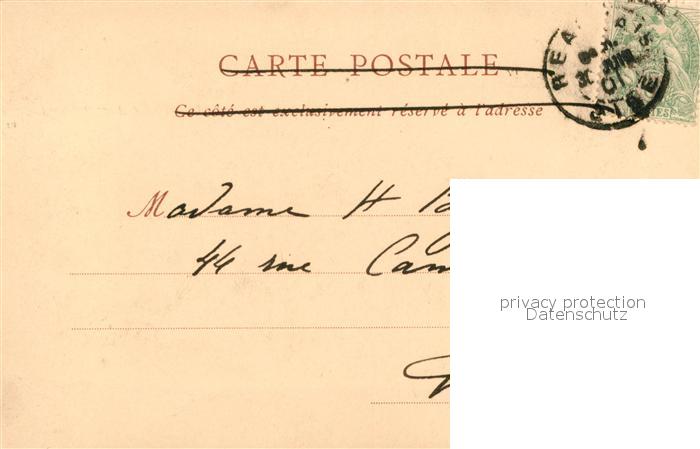 CARTE POSTALE
Ce côté est exclusivement réservé à l'adresse
Madame H B
44 rue Cam
privacy protection
Datenschutz